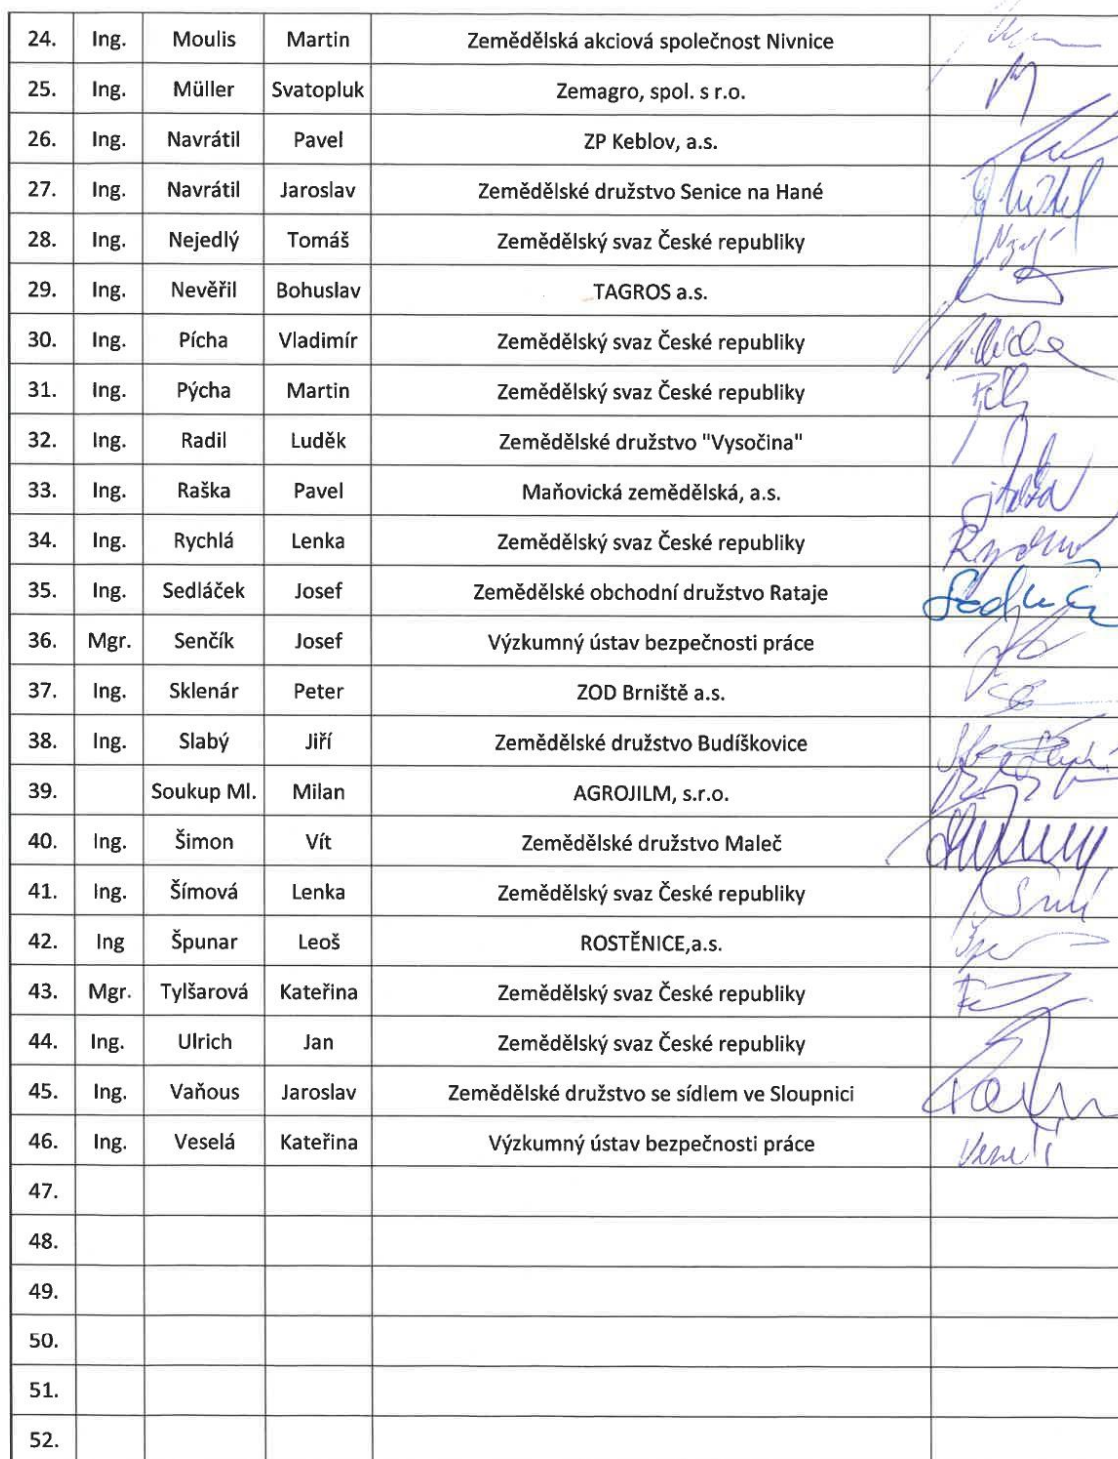 24. Ing. Moulis Martin Zemědělská akciová společnost Nivnice
25. Ing. Müller Svatopluk Zemagro, spol. s r.o.
26. Ing. Navrátil Pavel ZP Keblov, a.s.
27. Ing. Navrátil Jaroslav Zemědělské družstvo Senice na Hané
28. Ing. Nejedlý Tomáš Zemědělský svaz České republiky
29. Ing. Nevěřil Bohuslav TAGROS a.s.
30. Ing. Pícha Vladimír Zemědělský svaz České republiky
31. Ing. Pýcha Martin Zemědělský svaz České republiky
32. Ing. Radil Luděk Zemědělské družstvo "Vysočina"
33. Ing. Raška Pavel Maňovická zemědělská, a.s.
34. Ing. Rychlá Lenka Zemědělský svaz České republiky
35. Ing. Sedláček Josef Zemědělské obchodní družstvo Rataje
36. Mgr. Senčík Josef Výzkumný ústav bezpečnosti práce
37. Ing. Sklenár Peter ZOD Brniště a.s.
38. Ing. Slabý Jiří Zemědělské družstvo Budíškovice
39. Soukup Ml. Milan AGROJILM, s.r.o.
40. Ing. Šimon Vít Zemědělské družstvo Maleč
41. Ing. Šímová Lenka Zemědělský svaz České republiky
42. Ing Špunar Leoš ROSTĚNICE,a.s.
43. Mgr. Tylšarová Kateřina Zemědělský svaz České republiky
44. Ing. Ulrich Jan Zemědělský svaz České republiky
45. Ing. Vaňous Jaroslav Zemědělské družstvo se sídlem ve Sloupnici
46. Ing. Veselá Kateřina Výzkumný ústav bezpečnosti práce
47.
48.
49.
50.
51.
52.